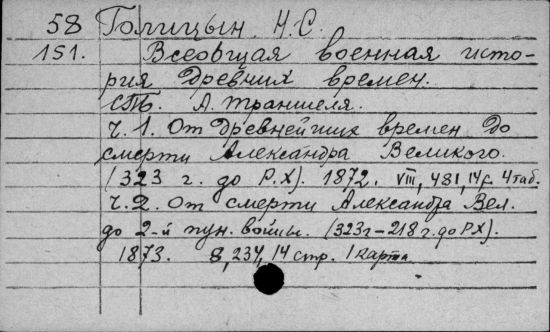 58 Голицын Н.С.
151. Всеобщая военная исто-
рия древних времен.
СПб. А. Траншеля.
Ч. 1. От древнейших времен до
смерти Александра Великого.
(323 г. до Р.Х). 1872. VIII, 481, 14 с. 4 таб.
Ч. 2. От смерти Александра Вел.
до 2-й пун. войны. (323 г - 218 г. до РХ).
1873. 8, 234, 14 стр. 1 карта